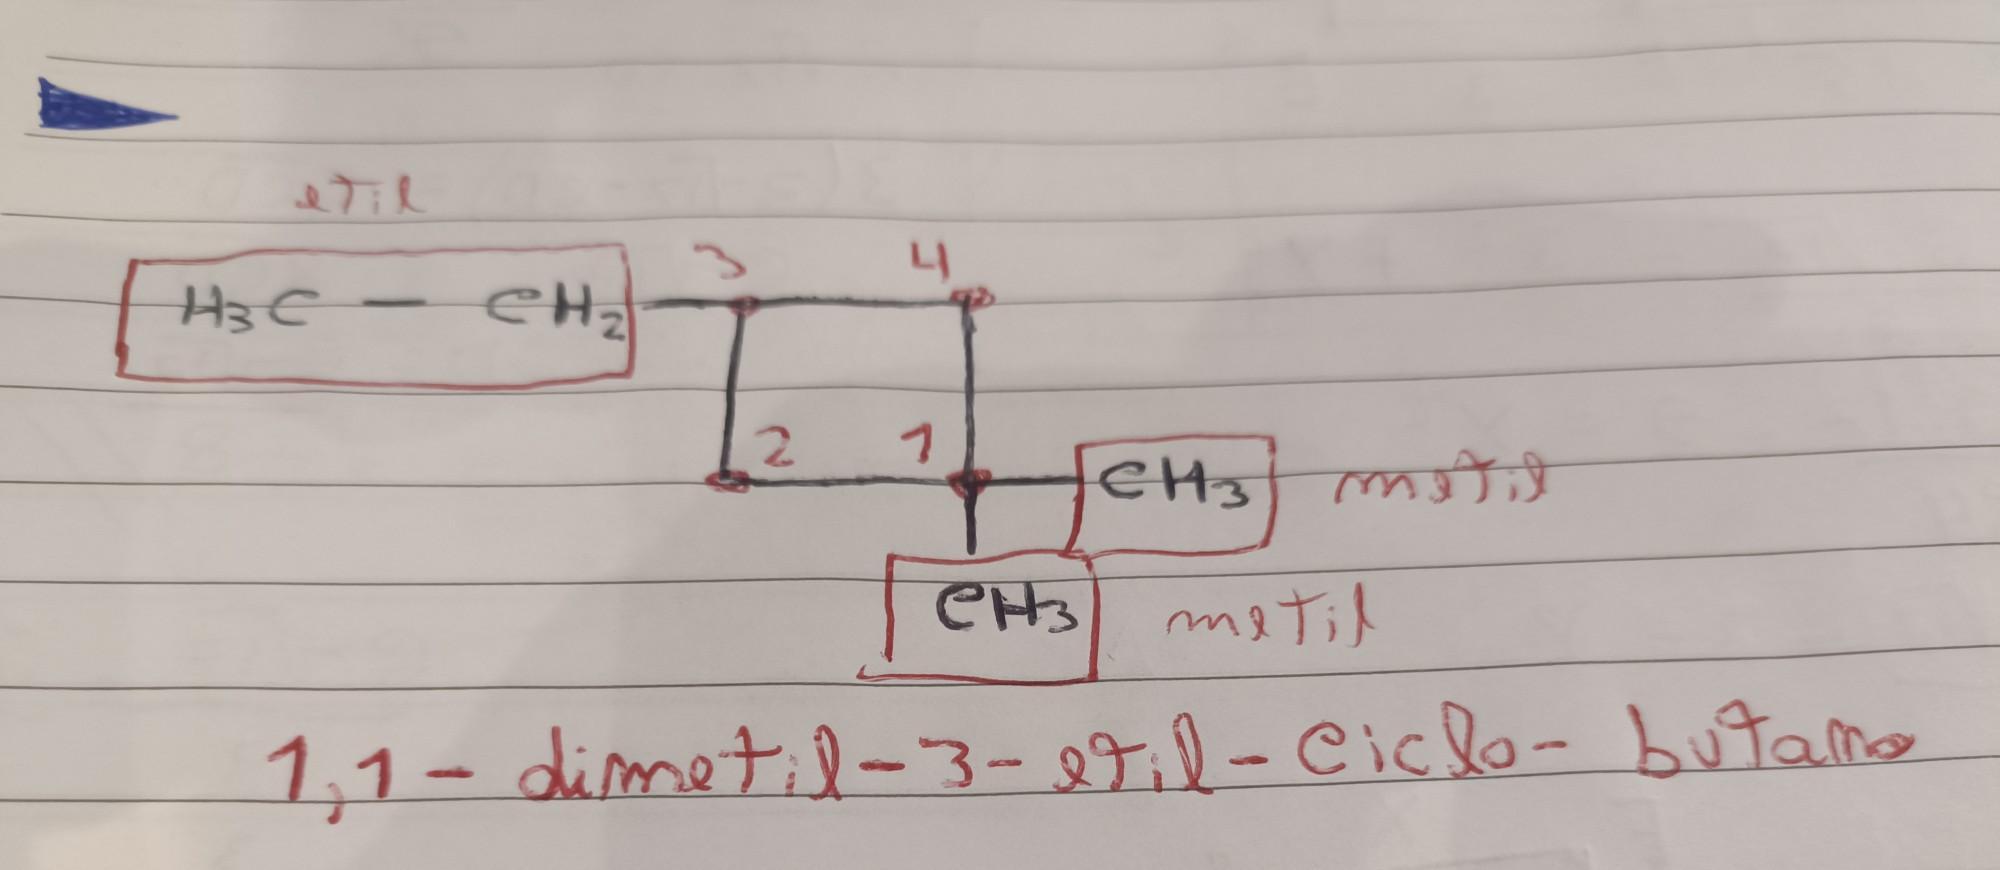 etil
3 4
H3C - CH2
2 1
CH3 metil
CH3 metil
1,1-dimetil-3-etil-ciclo-butano